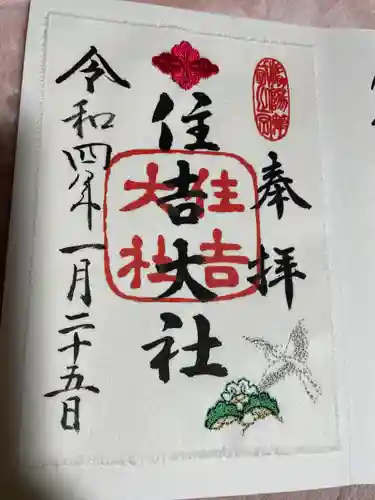 奉拝
住吉大社
住吉
大社
令和四年一月二十五日